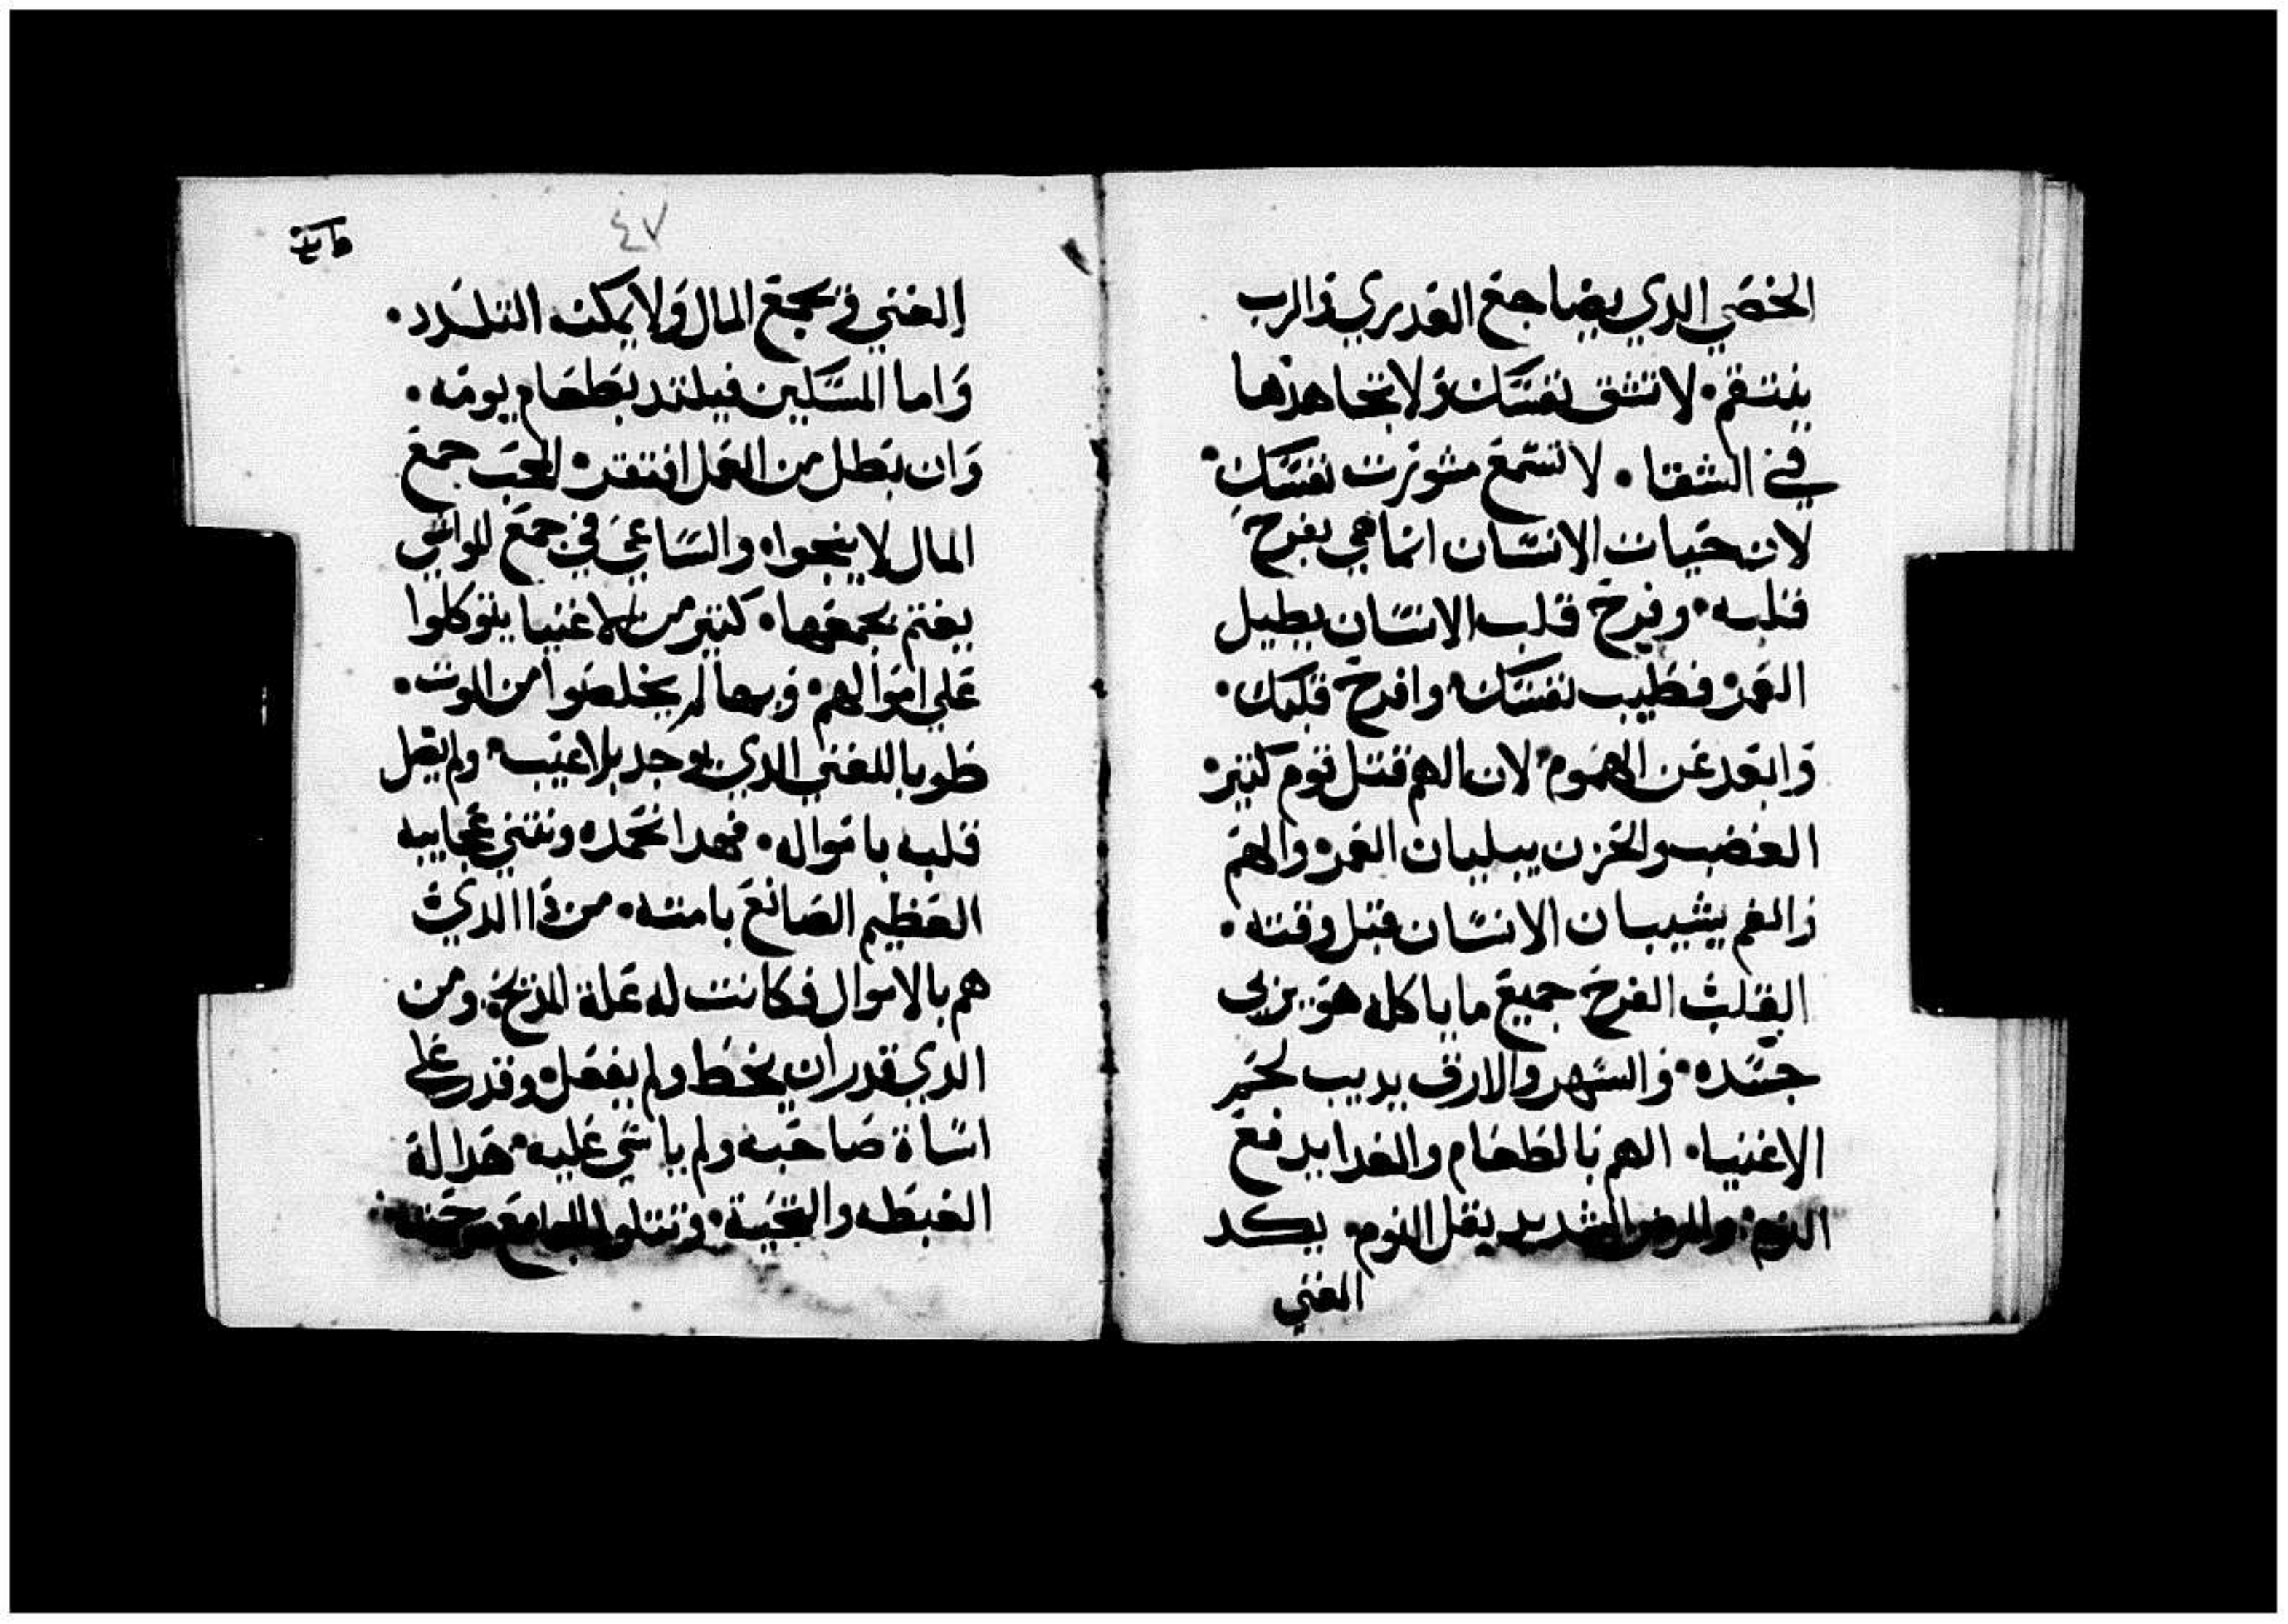 الخصي الدي يضاجع العدري والرب
ينتقم. لا تشق نفسك ولا تجاهدها
في الشقا. لا تسمع مشورت نفسك.
لان حيات الانسان انما هي بفرح
قلبه. وفرح قلب الانسان يطيل
العمر. فطيب نفسك وافرح قلبك.
وابعد عن الهموم. لان الهم قتل قوم كتير.
الغضب والحزن يبليان العمر. والهم
والغم يشيبان الانسان قبل وقته.
القلب الفرح جميع ما ياكله هو يربي
جسده. والسهر والارق يديب لحم
الاغنيا. الهم بالطعام والغدا يدفع
النوم. والمرض الشديد يقل النوم. يكد
الغني
٤٧
الغني في تجمع المال ولا يمكنه التلدد.
واما المسكين فيلتد بطعام يومه.
وان بطل من العمل افتقر. المحب جمع
المال لا ينجوا. والساعي في جمع
يغتم بجمعها. كتير من الاغنيا يتوكلوا
علي اموالهم. وبها لم يخلصوا من الموت.
طوبا للغني الدي يوجد بلا عيب. ولم يقل
قلبه باموله. فهدا نحمده ونتني عجايبه
العظيم الصانع بامته. من دا الدي
هم بالاموال فكانت له علة المديح. ومن
الدي قدر ان يخط ولم يفعل. وقدر علي
اساة صاحبه ولم ياسي عليه. هدا له
الغبطه والتحية. وتتلوا المجامع